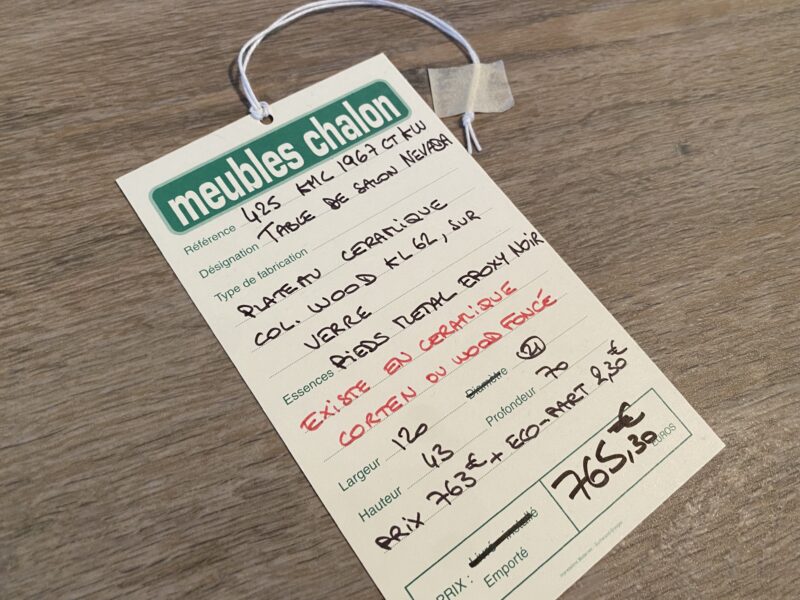 meubles chalon
Référence 425 KMC 1967 CT KW
Désignation TABLE DE SALON NEVADA
Type de fabrication
PLATEAU CERAMIQUE
COL. WOOD KL 62, SUR
VERRE
Essences PIEDS METAL EPOXY NOIR
EXISTE EN CERAMIQUE
CORTEN OU WOOD FONCÉ
Largeur 120 Diamètre 21
Hauteur 43 Profondeur 70
PRIX 763€ + ECO-PART 2,30€
PRIX : Livré - installé
Emporté
765,30€
EUROS